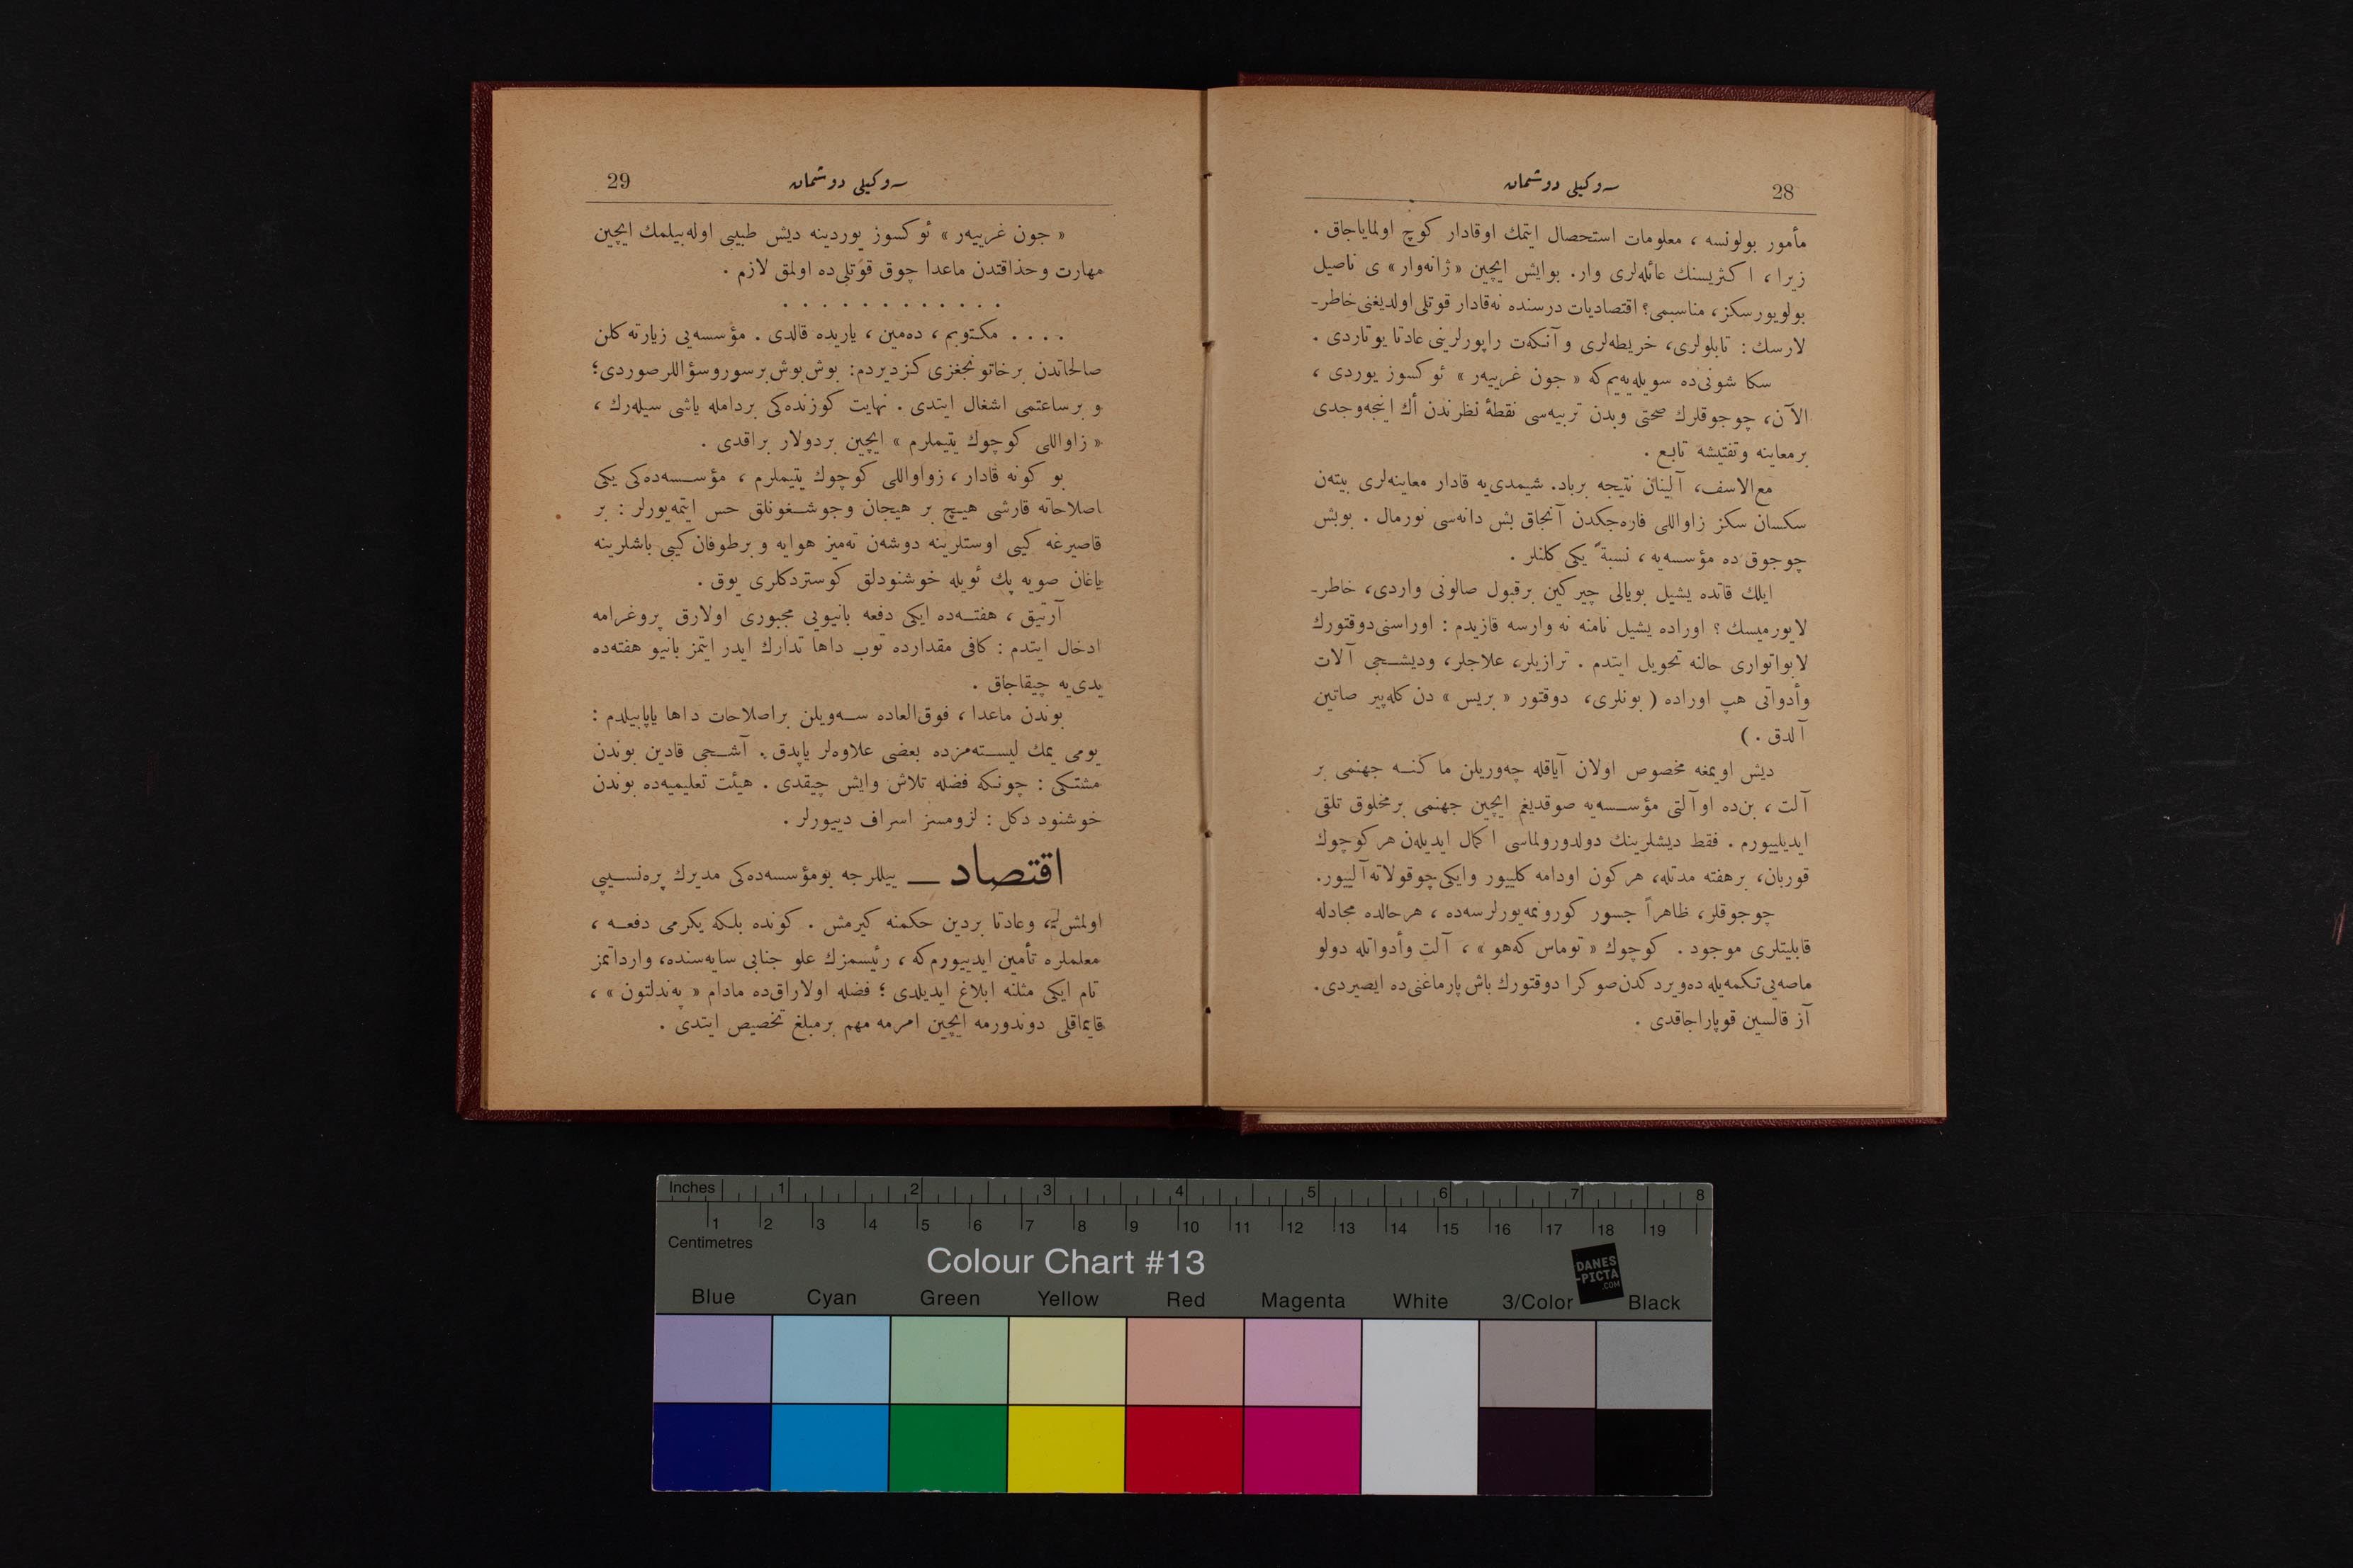 28
سەوكیلی دوشمان
مأمور بولونسه ، معلومات استحصال ایتمك اوقادار كوچ اولمایاجاق .
زیرا ، اكثریسنك عائله‌لری وار. بوایش ایچین «ژانه‌وار» ی ناصیل
بولویورسكز، مناسبمی؟ اقتصادیات درسنده نه‌قادار قوتلی اولدیغنی خاطر-
لارسك : تابلولری، خریطه‌لری و آنكه‌ت راپورلرینی عادتا یوتاردی .
سكا شونی ده سویله‌یه‌یم كه « جون غرییه‌ر » ئوكسوز یوردی ،
الآن، چوجوقلرك صحتی وبدن تربیه‌سی نقطهٔ نظرندن أك اینجه‌وجدی
برمعاینه وتفتیشه تابع .
مع‌الاسف، آلینان نتیجه برباد. شیمدی‌یه قادار معاینه‌لری بیته‌ن
سكسان سكز زاواللی فاره‌جكدن آنجاق بش دانه‌سی نورمال . بوبش
چوجوق ده مؤسسه‌یه ، نسبةً یكی كلنلر .
ایلك قاتده یشیل بویالی چیركین برقبول صالونی واردی، خاطر-
لایورمیسك ؟ اوراده یشیل نامنه نه وارسه قازیدم : اوراسنی دوقتورك
لابواتواری حالنه تحویل ایتدم . ترازیلر، علاجلر، ودیشجی آلات
وأدواتی هپ اوراده ( بونلری، دوقتور « بریس » دن كله‌پیر صاتین
آلدق . )
دیش اویمغه مخصوص اولان آیاقله چه‌وریلن ماكنه جهنمی بر
آلت ، بن‌ده اوآلتی مؤسسه‌یه صوقدیغم ایچین جهنمی برمخلوق تلقی
ایدیلییورم . فقط دیشلرینك دولدورولماسی اكمال ایدیله‌ن هركوچوك
قوربان، برهفته مدتله، هركون اودامه كلییور وایكی چوقولاته آلییور.
چوجوقلر، ظاهراً جسور كورونمه‌یورلرسه‌ده ، هرحالده مجادله
قابلیتلری موجود . كوچوك « توماس كه‌هو » ، آلت وأدواتله دولو
ماصه‌یی تكمه‌یله ده‌ویردكدن صوكرا دوقتورك باش پارماغنی‌ده ایصیردی.
آز قالسین قوپاراجاقدی .
29
سەوكیلی دوشمان
« جون غرییه‌ر » ئوكسوز یوردینه دیش طبیبی اوله‌بیلمك ایچین
مهارت وحذاقتدن ماعدا چوق قوّتلی‌ده اولمق لازم .
. . . . . . . . . . . .
. . . . مكتوبم ، ده‌مین ، یاریده قالدی . مؤسسه‌یی زیارته كلن
صالحاتدن برخاتونجغزی كزدیردم: بوش بوش برسوروسؤاللرصوردی؛
و برساعتمی اشغال ایتدی . نهایت كوزنده‌كی بردامله یاشی سیله‌رك ،
« زاواللی كوچوك یتیملرم » ایچین بردولار براقدی .
بو كونه قادار ، زواواللی كوچوك یتیملرم ، مؤسسه‌ده‌كی یكی
اصلاحاته قارشی هیچ بر هیجان وجوشغونلق حس ایتمه‌یورلر : بر
قاصیرغه كیبی اوستلرینه دوشه‌ن ته‌میز هوایه و برطوفان كیبی باشلرینه
یاغان صویه پك ئویله خوشنودلق كوستردكلری یوق .
آرتیق ، هفته‌ده ایكی دفعه بانیویی مجبوری اولارق پروغرامه
ادخال ایتدم : كافی مقدارده توب داها تدارك ایدر ایتمز بانیو هفته‌ده
یدی‌یه چیقاجاق .
بوندن ماعدا ، فوق‌العاده سه‌ویلن براصلاحات داها یاپابیلدم :
یومی یمك لیسته‌مزده بعضی علاوه‌لر یاپدق . آشجی قادین بوندن
مشتكی : چونكه فضله تلاش وایش چیقدی . هیئت تعلیمیه‌ده بوندن
خوشنود دكل : لزومسز اسراف دییورلر .
اقتصاد — ییللرجه بومؤسسه‌ده‌كی مدیرك پره‌نسیپی
اولمش، وعادتا بردین حكمنه كیرمش . كونده بلكه یكرمی دفعه ،
معلملره تأمین ایدییورم‌كه ، رئیسمزك علو جنابی سایه‌سنده، وارداتمز
تام ایكی مثلنه ابلاغ ایدیلدی ؛ فضله اولاراق‌ده مادام « په‌ندلتون » ،
قایماقلی دوندورمه ایچین امرمه مهم برمبلغ تخصیص ایتدی .
Inches 1 2 3 4 5 6 7 8
1 2 3 4 5 6 7 8 9 10 11 12 13 14 15 16 17 18 19
Centimetres
Colour Chart #13
DANES
-PICTA
.COM
Blue Cyan Green Yellow Red Magenta White 3/Color Black